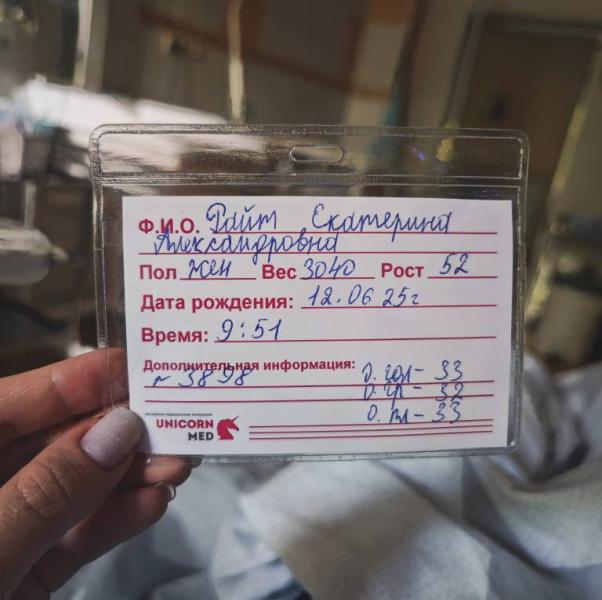 Ф.И.О. Райт Екатерина
Александровна
Пол жен Вес 3040 Рост 52
Дата рождения: 12.06 25г
Время: 9:51
Дополнительная информация:
№ 3898
О. гол - 33
О. гр - 32
О. пл - 33
UNICORN
MED